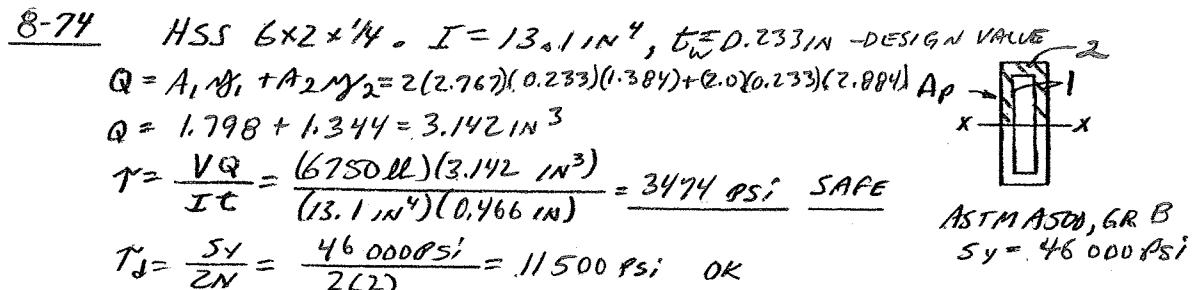 8-74 HSS 6x2x1/4. I = 13.1 IN⁴, t_w = 0.233 IN - DESIGN VALUE
Q = A₁y₁ + A₂y₂ = 2(2.767)(0.233)(1.384)+(2.0)(0.233)(2.884)
Q = 1.798 + 1.344 = 3.142 IN³
τ = VQ/It = (6750 lb)(3.142 IN³)/(13.1 IN⁴)(0.466 IN) = 3474 PSi SAFE
τd = Sy/2N = 46 000 PSi/2(2) = 11500 PSi OK
2
Ap 1
X X
ASTM A500, GR B
Sy = 46 000 PSi